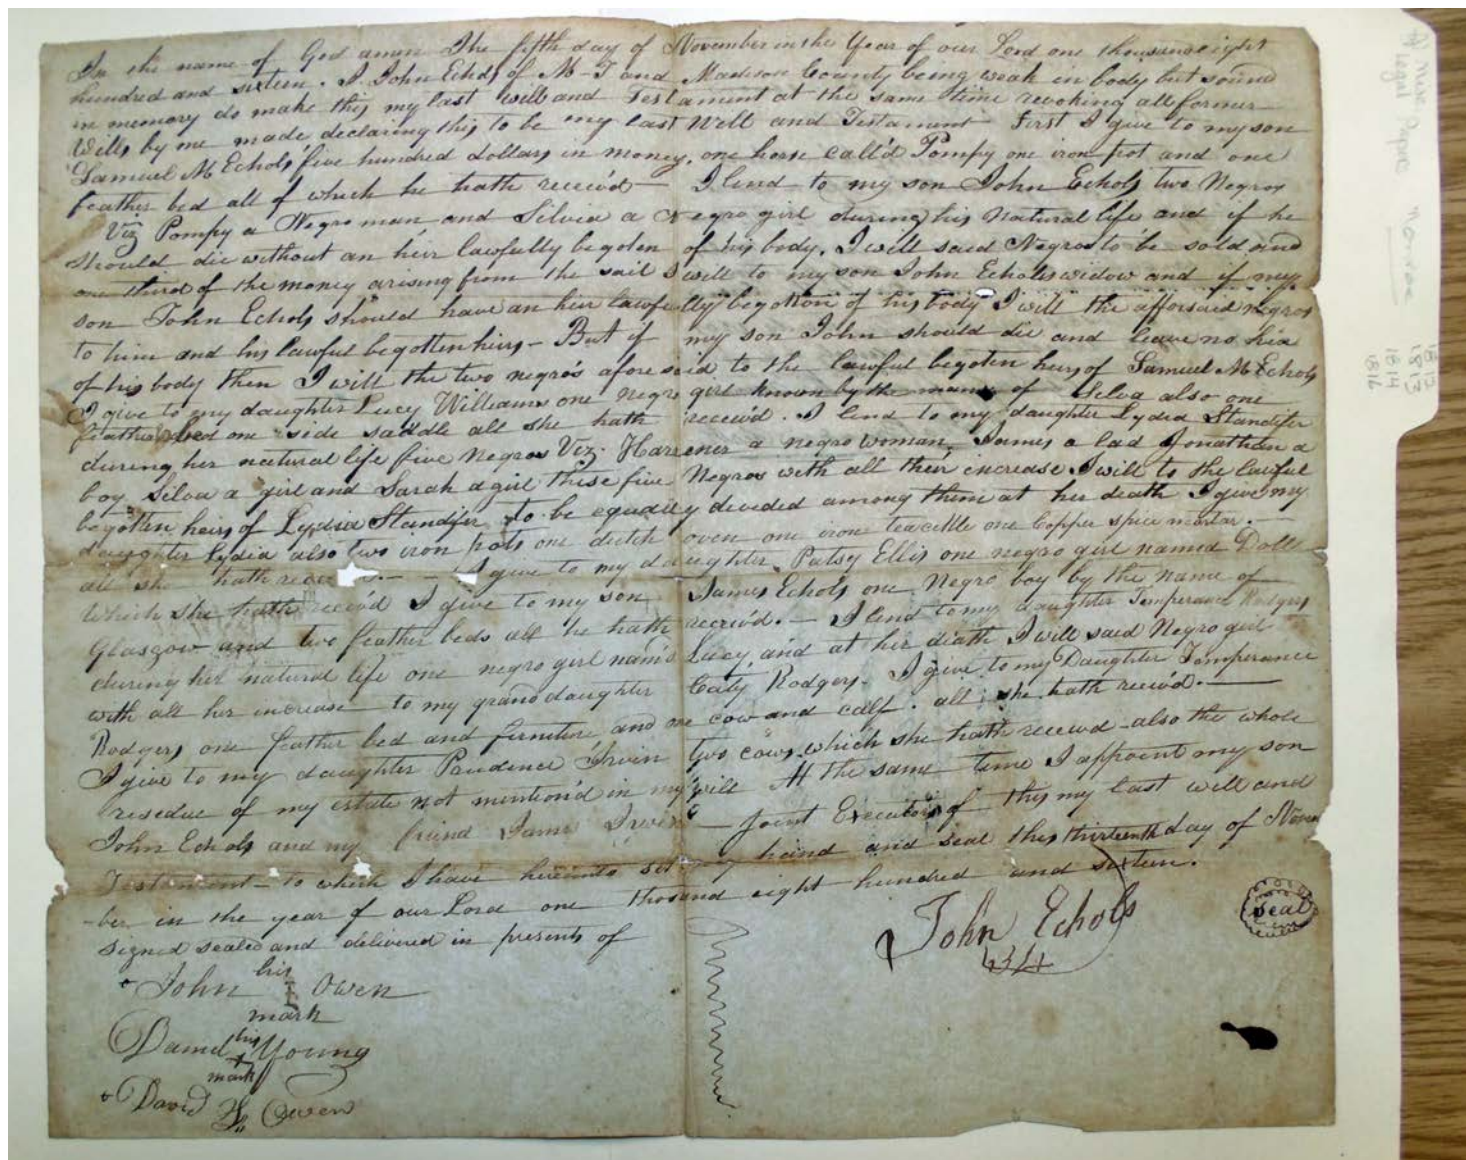 In the name of God amen The fifth day of November in the Year of our Lord one thousand eight
hundred and sixteen. I John Echols of M-T and Madison County being weak in body but sound
in memory do make this my last will and Testament at the same time revoking all former
Wills by me made declaring this to be my last Will and Testament First I give to my son
Samuel M Echols five hundred dollars in money, one horse call'd Pompy one iron pot and one
feather bed all of which he hath receiv'd — I lend to my son John Echols two Negros
Viz Pompy a Negro man and Silvia a Negro girl during his natural life and if he
should die without an heir lawfully begoten of his body, I will said Negros to be sold and
one third of the money arising from the sail I will to my son John Echols widow and if my
son John Echols should have an heir lawfully begotton of his body I will the afforsaid negros
to him and his lawful begotten heirs - But if my son John should die and leave no
of his body then I will the two negro's aforesaid to the lawful begoten heirs of Samuel M Echols
I give to my daughter Lucy Williams one negro girl known by the name of Selva also one
feather bed one side saddle all she hath receiv'd. I lend to my daughter Lydia Standifer
during her natural life five Negros Viz. a negro woman, James a lad Jonathan a
boy Selva a girl and Sarah a girl these five Negros with all their increase I will to the lawful
begotten heirs of Lydia Standifer to be equally devided among them at her death I give my
daughter Lydia also two iron pots one dutch oven one iron teacittle one Copper spice mortar. —
all she hath — I give to my daughter Patsy Ellis one negro girl named Doll
which she hath receiv'd I give to my son James Echols one Negro boy by the name of
Glasgow and two feather beds all he hath receiv'd. — I lend to my daughter Temperance Rodgers
during her natural life one negro girl nam'd Lucy, and at her death I will said Negro girl
with all her increase to my granddaughter Caty Rodgers. I give to my Daughter Temperance
Rodgers one feather bed and furniture and one cow and calf. all she hath receiv'd. —
I give to my daughter Prudence Irvin two cows which she hath receiv'd - also the whole
resedue of my estate not mention'd in my will At the same time I appoint my son
John Echols and my friend James Irvin — Joint Executors of this my last will and
Testament - to which I have hereunto set my hand and seal this thirteenth day of Novem
-ber in the year of our Lord one thousand eight hundred and sixteen.
signed sealed and delivered in presents of
John Echols
seal
John his Owen
mark
Daniel his Young
mark
David Owen
legal Papers
Monroe
1813
1814
1816